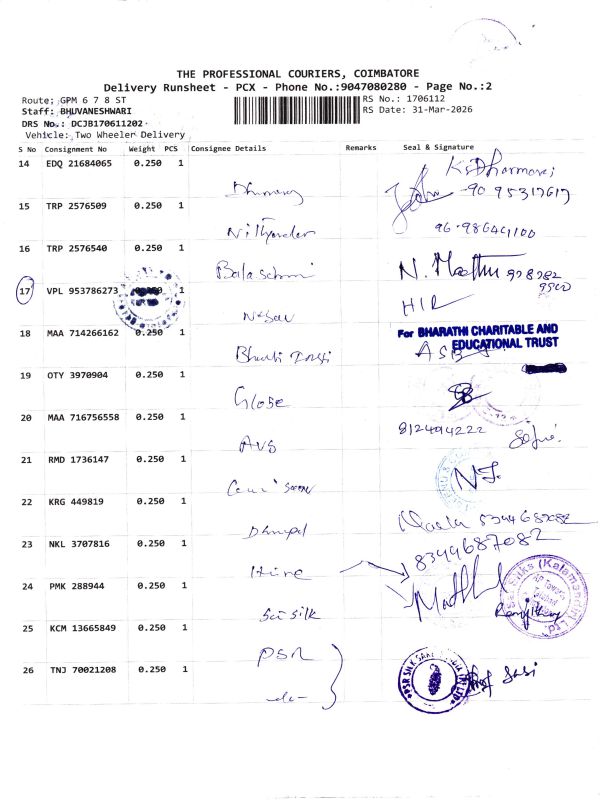 THE PROFESSIONAL COURIERS, COIMBATORE
Delivery Runsheet - PCX - Phone No.:9047080280 - Page No.:2
Route; GPM 6 7 8 ST
RS No.: 1706112
Staff: BHUVANESHWARI
RS Date: 31-Mar-2026
DRS No.: DCJB170611202
Vehicle: Two Wheeler Delivery
S No Consignment No Weight PCS Consignee Details Remarks Seal & Signature
14 EDQ 21684065 0.250 1
90 95317617
15 TRP 2576509 0.250 1
96-986441100
16 TRP 2576540 0.250 1
N. Madhu
17 VPL 953786273 0.250 1
HIR
18 MAA 714266162 0.250 1
For BHARATHI CHARITABLE AND
EDUCATIONAL TRUST
19 OTY 3970904 0.250 1
Globe
20 MAA 716756558 0.250 1
8124494222
AVS
21 RMD 1736147 0.250 1
22 KRG 449819 0.250 1
8344687082
23 NKL 3707816 0.250 1
8344687082
Hire
24 PMK 288944 0.250 1
Sai Silk
25 KCM 13665849 0.250 1
PSR
26 TNJ 70021208 0.250 1
-do-